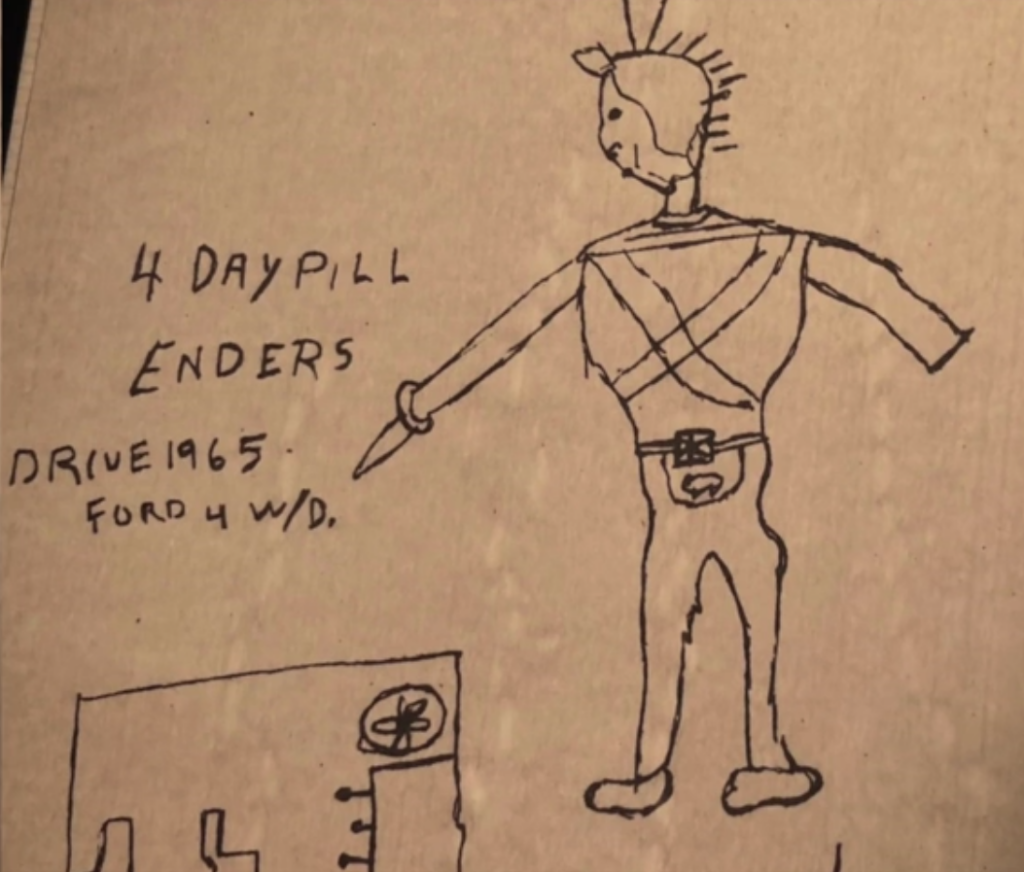 4 DAYPILL
ENDERS
DRIVE 1965
FORD 4 W/D.